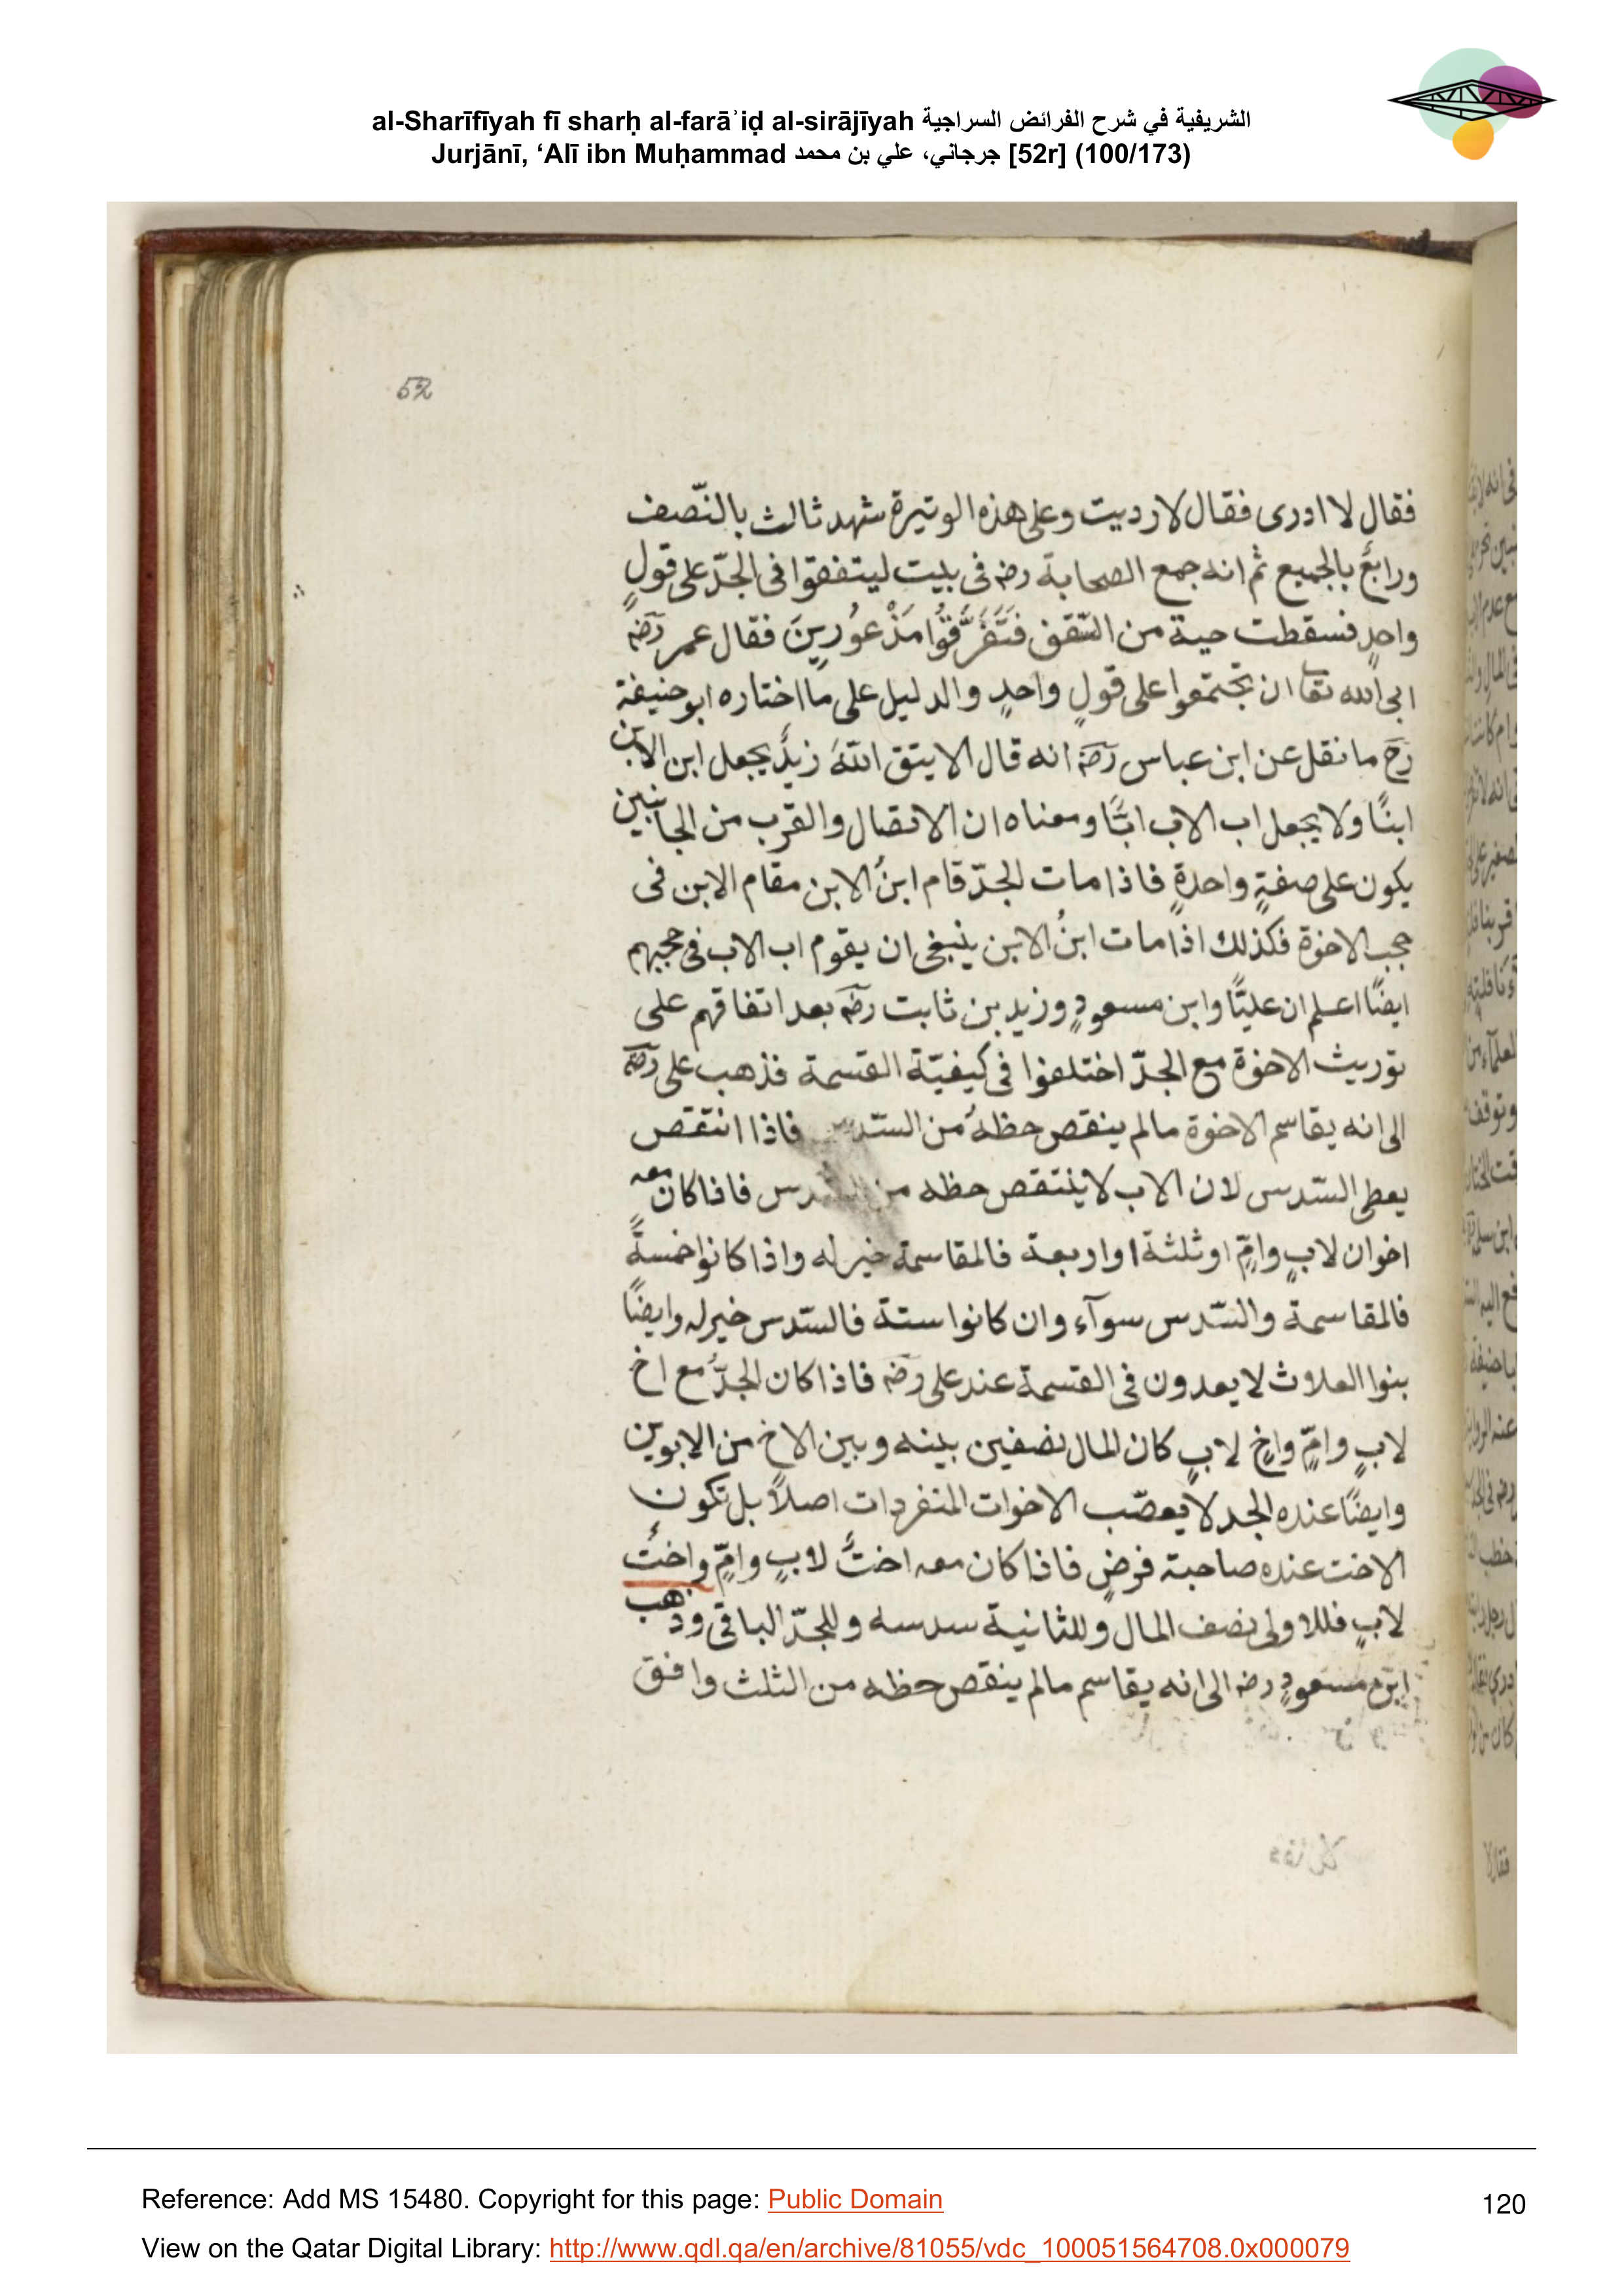 al-Sharīfīyah fī sharḥ al-farāʾiḍ al-sirājīyah الشريفية في شرح الفرائض السراجية
Jurjānī, ‘Alī ibn Muḥammad جرجاني، علي بن محمد [52r] (100/173)
52
فقال لا ادرى فقال لا ردبيت وعلى هذه الوتيرة شهد ثالث بالنّصف
ورابعٌ بالجميع ثم انه جمع الصحابة رضه فى بيت ليتفقوا فى الجدّ على قولٍ
واحدٍ فسقطت حية من السّقف فَتَفَرَّقُوْا مَذْعُوْرِينَ فقال عمر رضه
ابى الله تعا ان تجتمعوا على قولٍ واحدٍ والدليل على ما اختاره ابو حنيفة
رح ما نقل عن ابن عباس رضه انه قال الا يتق اللّٰهَ زيدٌ يجعل ابن الابن
ابنًا ولا يجعل اب الاب ابًا ومعناه ان الاتصال والقرب من الجانبين
يكون على صفةٍ واحدةٍ فاذا مات الجدّ قام ابنُ الابن مقام الابن فى
حجب الاخوة فكذلك اذا مات ابنُ الابن ينبغى ان يقوم اب الاب فى حجبهم
ايضًا اعلم ان عليًّا وابن مسعودٍ وزيد بن ثابت رضه بعد اتفاقهم على
توريث الاخوة مع الجدّ اختلفوا فى كيفيّة القسمة فذهب على رضه
الى انه يقاسم الاخوة مالم ينقص حظهُ من السّدس فاذا انتقص
يعطى السّدس لان الاب لا ينتقص حظه من السّدس فاذا كان معه
اخوان لابٍ وامٍّ او ثلثة او اربعة فالمقاسمة خير له واذا كانوا خمسةً
فالمقاسمة والسّدس سوآء وان كانوا ستة فالسّدس خير له وايضًا
بنوا العلاث لا يعدون فى القسمة عند على رضه فاذا كان الجدّ مع اخ
لابٍ وامٍّ واخٍ لابٍ كان المال نصفين بينه وبين الاخ من الابوين
وايضًا عنده الجد لا يعصّب الاخوات المنفردات اصلاً بل تكون
الاخت عنده صاحبة فرضٍ فاذا كان معه اختٌ لابٍ وامٍّ واختٌ
لابٍ فللاولى نصف المال وللثانية سدسه وللجدّ الباقى وذهب
ابن مسعودٍ رضه الى انه يقاسم مالم ينقص حظه من الثلث وافق
Reference: Add MS 15480. Copyright for this page: Public Domain
120
View on the Qatar Digital Library: http://www.qdl.qa/en/archive/81055/vdc_100051564708.0x000079